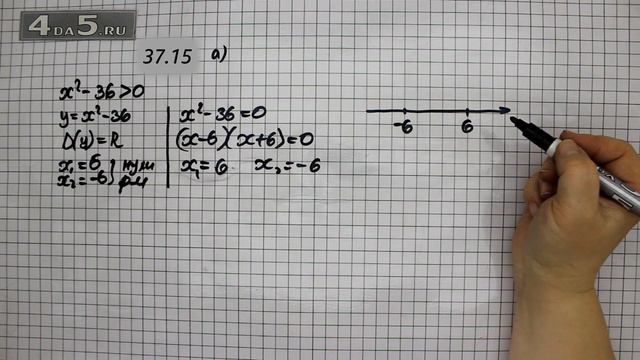 4DA5.RU
37.15 а)
x²-36>0
y=x²-36
D(y)=R
x₁=6 } нули
x₂=-6 } ф-и
x²-36=0
(x-6)(x+6)=0
x₁=6 x₂=-6
-6 6